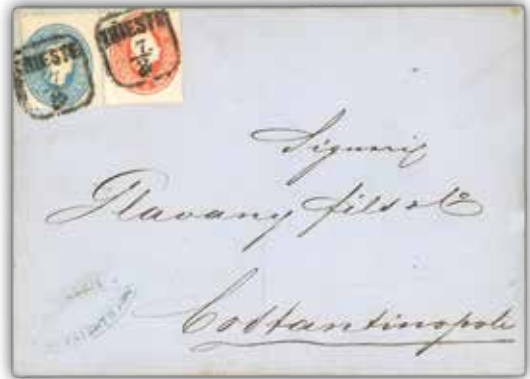 TRIESTE
7
TRIESTE
7
Signori
Glavany fils & Co
Costantinopoli